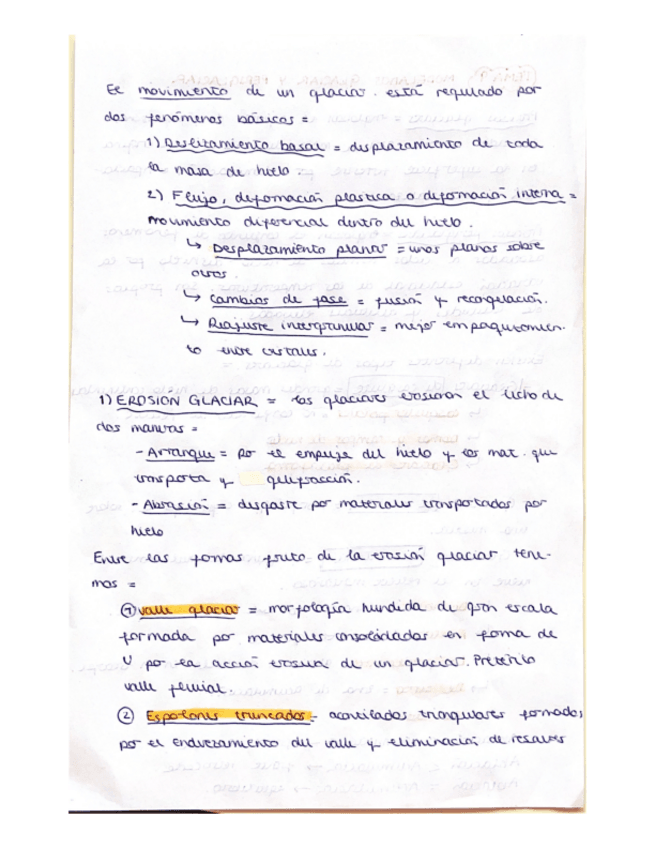 El movimiento de un glaciar está regulado por
dos fenómenos básicos =
1) Deslizamiento basal = desplazamiento de toda
la masa de hielo.
2) Flujo, deformación plástica o deformación interna =
movimiento diferencial dentro del hielo.
↳ Desplazamiento planar = unos planos sobre
otros.
↳ Cambios de fase = fusión y recongelación.
↳ Reajuste intergranular = mejor empaquetamien-
to entre cristales.
1) EROSIÓN GLACIAR = los glaciares erosionan el lecho de
dos maneras =
- Arranque = por el empuje del hielo y los mat. que
transporta y gelifracción.
- Abrasión = desgaste por materiales transportados por
hielo
Entre las formas fruto de la erosión glaciar tene-
mos =
① valle glaciar = morfología hundida de gran escala
formada por materiales consolidados en forma de
U por la acción erosiva de un glaciar. Pretérito
valle fluvial.
② Espolones truncados = acantilados triangulares formados
por el enderezamiento del valle y eliminación de resaltes